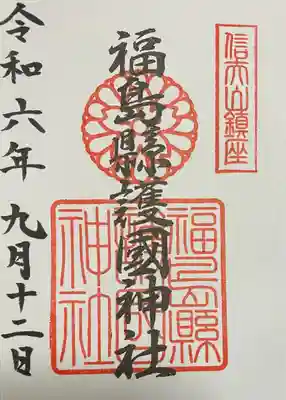 信夫山鎮座
福島縣護國神社
令和六年九月十二日
福島縣
護國
神社